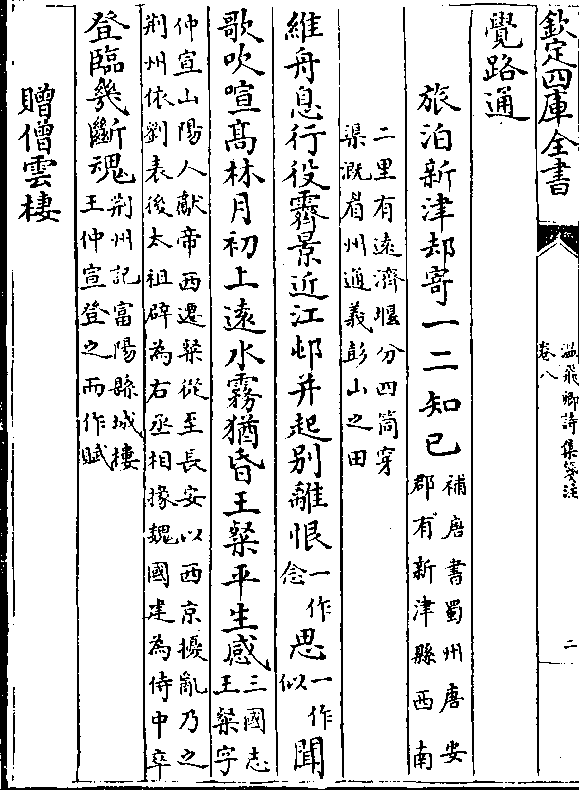 欽定四庫全書
溫飛卿詩集箋注
卷八
二
覺路通
旅泊新津却寄一二知已補唐書蜀州唐安
郡有新津縣西南
二里有遠濟堰分四筒穿
渠溉眉州通義彭山之田
維舟息行役霽景近江邨并起别離恨一作
念思一作
似聞
歌吹喧高林月初上遠水霧猶昏王粲平生感三國志
王粲字
仲宣山陽人獻帝西遷粲從至長安以西京擾亂乃之
荆州依劉表後太祖辟為右丞相掾魏國建為侍中卒
登臨幾斷魂荆州記富陽縣城樓
王仲宣登之而作賦
贈僧雲棲